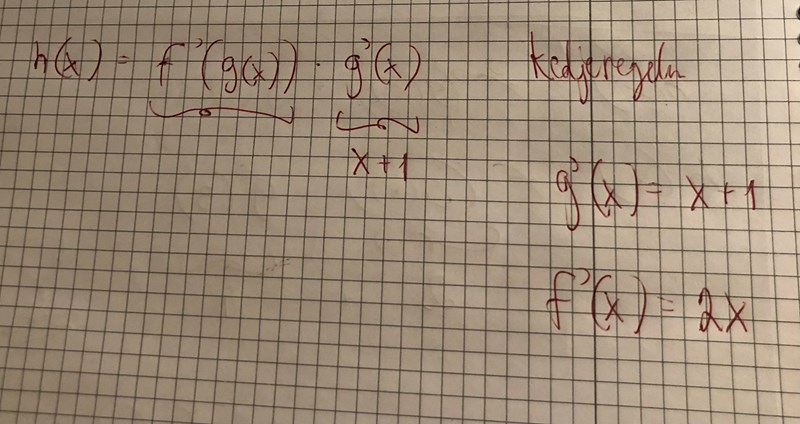 h(x) = f'(g(x)) · g'(x) Kedjeregeln
x + 1
g'(x) = x + 1
f'(x) = 2x